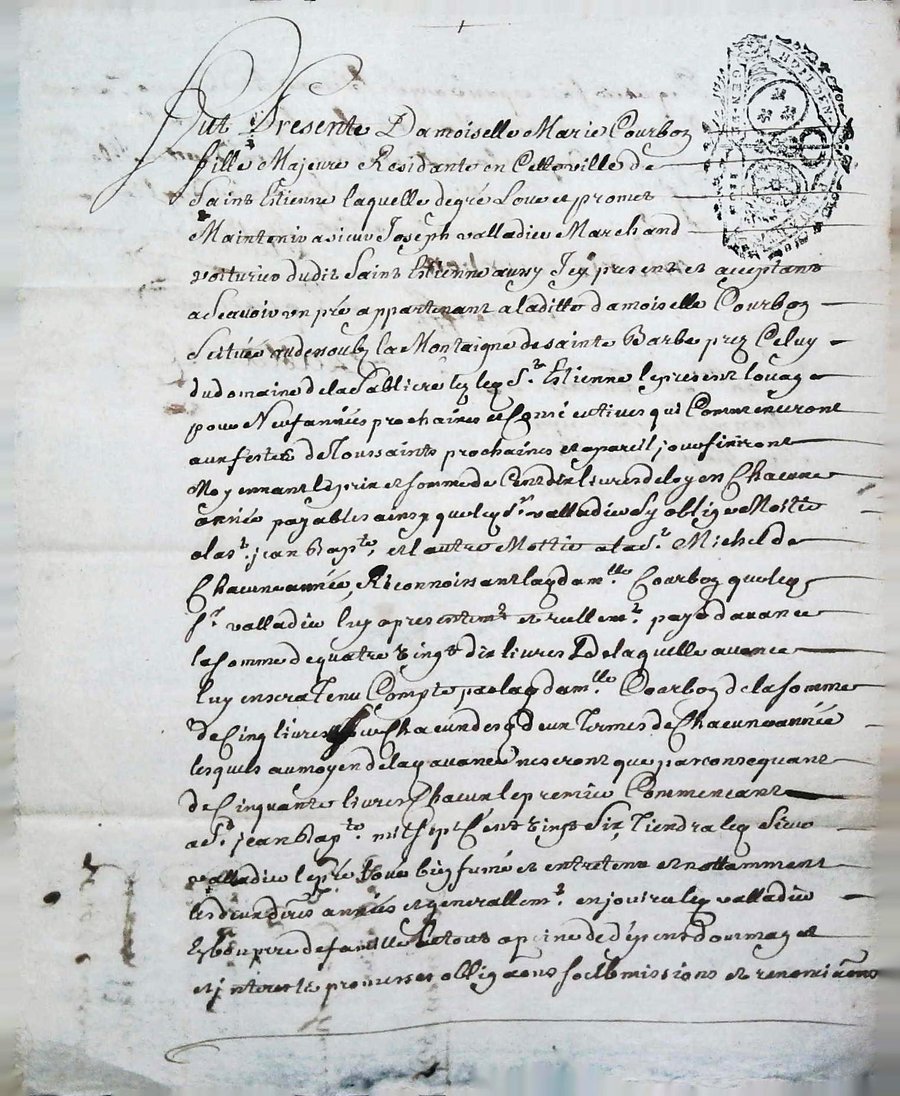 HUIT DEN
GEN
Fut Presente Damoiselle Marie Courbon
fille Majeure Residante en Cette ville de
Saint Estienne laquelle degré Loue et promet
Maintenir a sieur Joseph valladier Marchand
voiturier dudit Saint Estienne aussy Icy present et acceptant
a Scavoir un pré appartenant a laditte damoiselle Courbon
Scitué au dessoubz la Montaigne de sainte Barbe prez Celuy
du domaine de la Sabliere lez led Sr. Estienne le present louage
pour Neuf années prochaines et Consécutives qui Commenceront
aux festes de Toussaints prochaines et a pareil jour finiront
Moyennant le prix et somme de Cent dix livres deloy en Chacune
année payables ainsy que led Sr. valladier Sy oblige Moitie
a la St. jean Bapte. et l'autre Moitie a la St. Michel de
Chacune année, Reconnoissant lad damlle. Courbon que led
Sr. valladier luy a presentemt. et reellemt. payé d'avance
la somme de quatre vingt dix livres De laquelle avance
luy en sera tenu Compte par lad damlle. Courbon de la somme
de Cinq livres sur Chacun desd deux termes de Chacune année
lesquels au moyen de lad avance ne seront que par consequant
de Cinquante livres Chacun le premier Commencant
a St. jean Bapte. mil sept Cent vingt Six, Tiendra led Sieur
valladier le pré Loué bien fumé et entretenu et nottamment
les deux dires années et generallemt. en jouira led valladier
En bon pere de famille Le tout a peine de dépens dommages
et interests promesses obligaons soubmissions et renonciaons